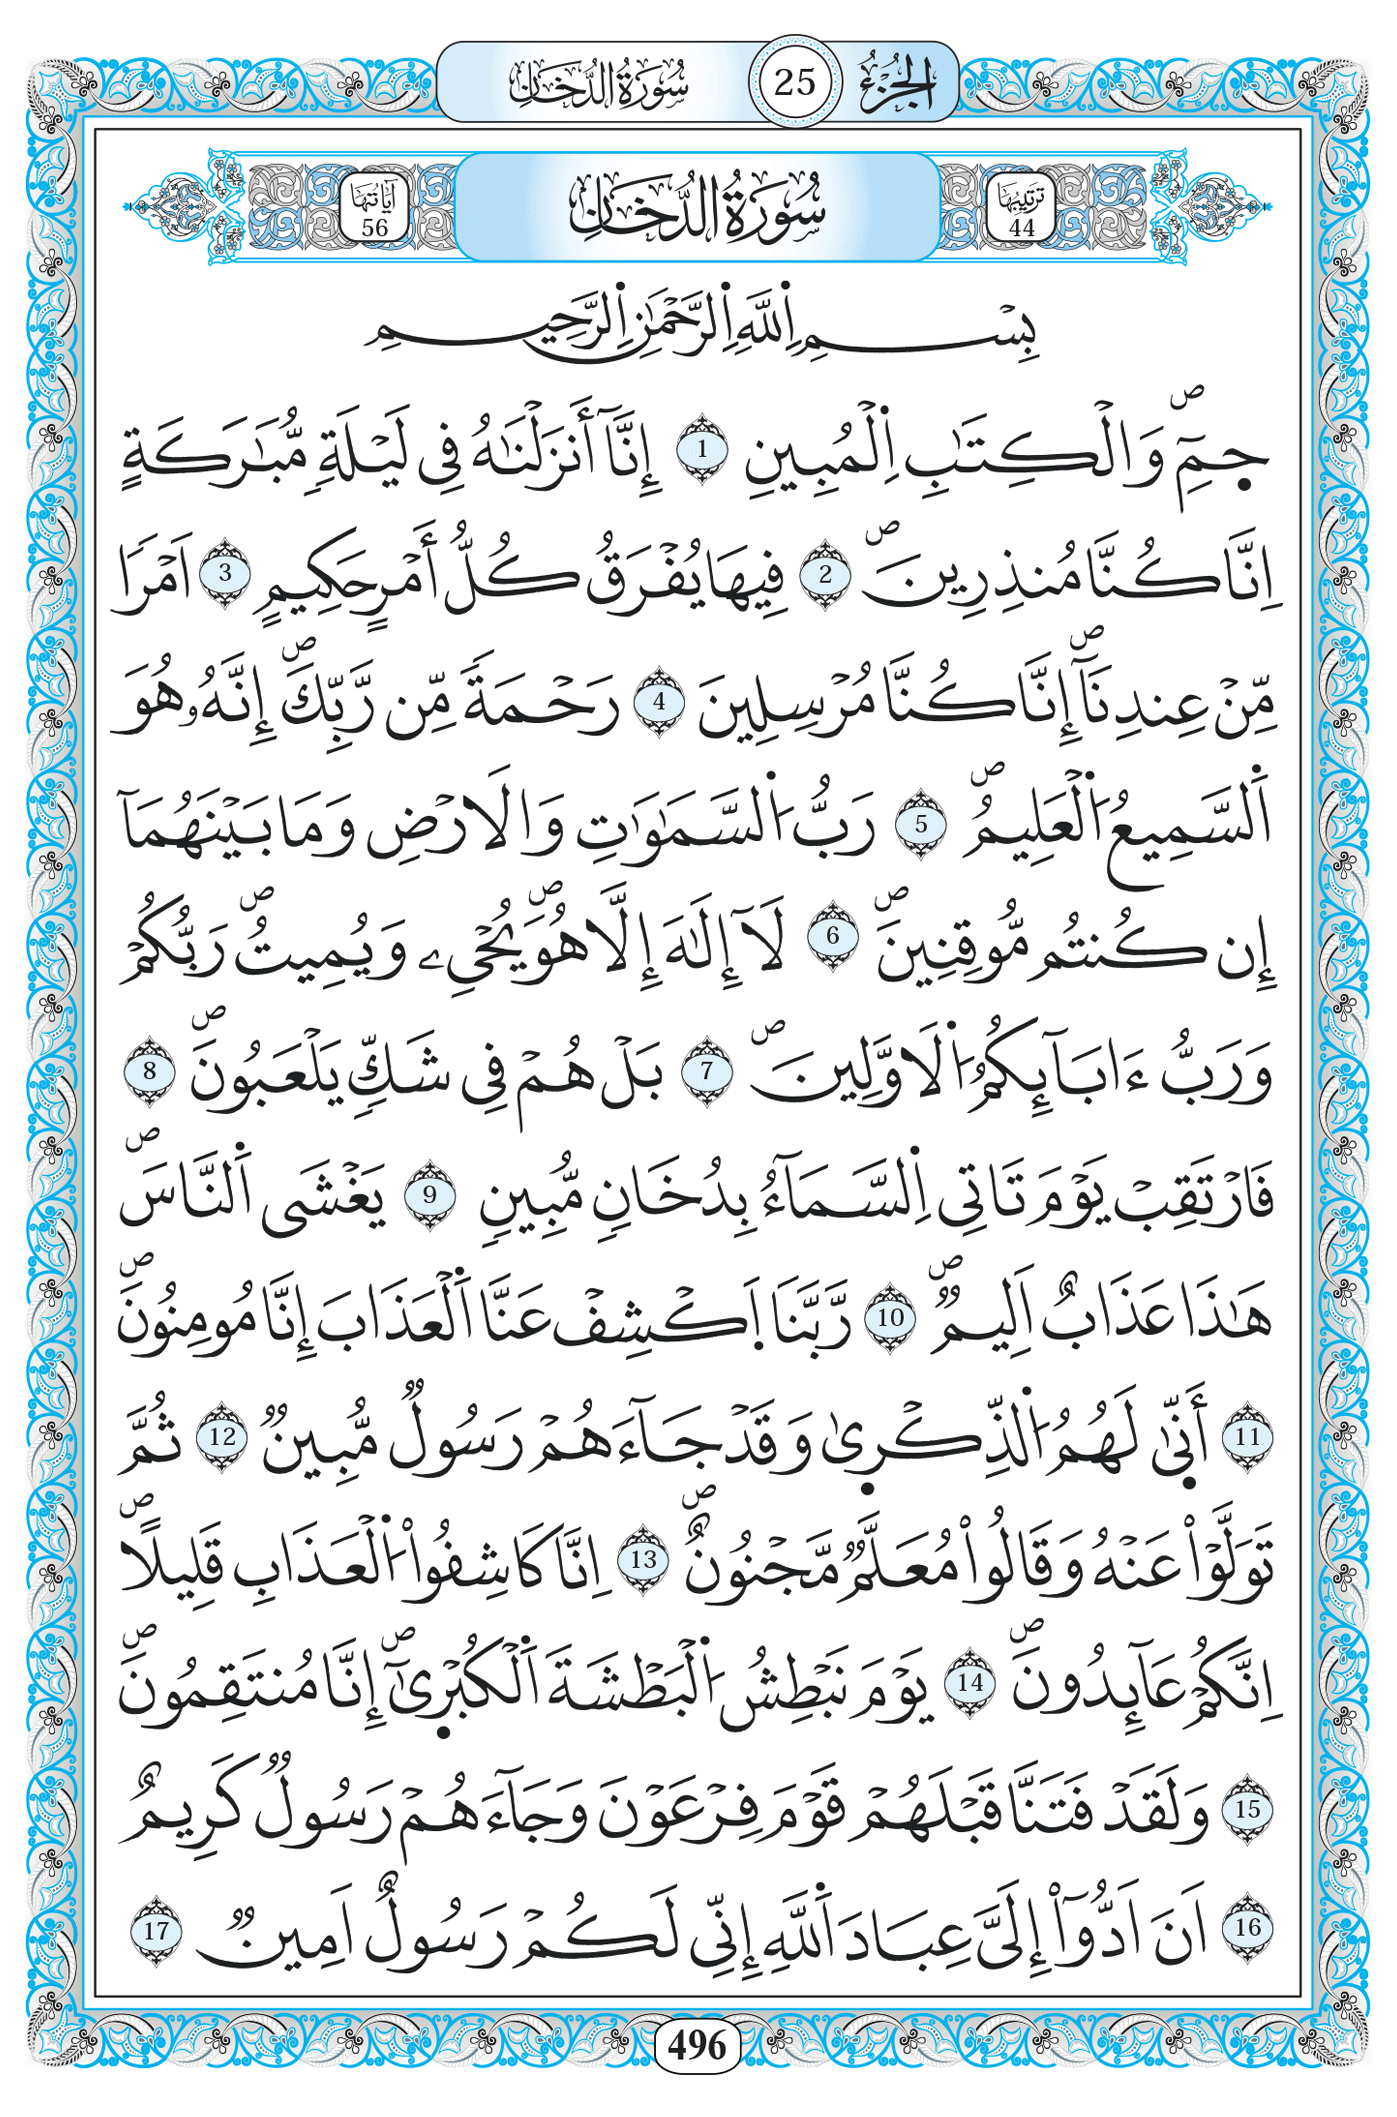 الجزء 25 سورة الدخان
ترتيبها 44 سورة الدخان آياتها 56
بِسْمِ اِللَّهِ اِلرَّحْمَٰنِ اِلرَّحِيمِ
جمِٓۖ وَالْكِتَٰبِ اِلْمُبِينِ 1 إِنَّآ أَنزَلْنَٰهُ فِى لَيْلَةٖ مُّبَٰرَكَةٍ
اِنَّا كُنَّا مُنذِرِينَۖ 2 فِيهَا يُفْرَقُ كُلُّ أَمْرٍ حَكِيمٍ 3 اَمْراٗ
مِّنْ عِندِنَآۖ إِنَّا كُنَّا مُرْسِلِينَ 4 رَحْمَةٗ مِّن رَّبِّكَۖ إِنَّهُۥ هُوَ
اَلسَّمِيعُ اُلْعَلِيمُۖ 5 رَبُّ اُلسَّمَٰوَٰتِ وَالَارْضِ وَمَا بَيْنَهُمَآ
إِن كُنتُم مُّوقِنِينَۖ 6 لَآ إِلَٰهَ إِلَّا هُوَۖ يُحْىِۦ وَيُمِيتُۖ رَبُّكُمْ
وَرَبُّ ءَابَآئِكُمُ اُلَاوَّلِينَۖ 7 بَلْ هُمْ فِى شَكّٖ يَلْعَبُونَۖ 8
فَارْتَقِبْ يَوْمَ تَاتِى اِلسَّمَآءُ بِدُخَانٖ مُّبِينٖ 9 يَغْشَى اَلنَّاسَۖ
هَٰذَا عَذَابٌ اَلِيمٞۖ 10 رَّبَّنَا اَكْشِفْ عَنَّا اَلْعَذَابَ إِنَّا مُومِنُونَۖ
11 أَنّ۪ىٰ لَهُمُ اُلذِّكْر۪ىٰ وَقَدْ جَآءَهُمْ رَسُولٞ مُّبِينٞ 12 ثُمَّ
تَوَلَّوْاْ عَنْهُ وَقَالُواْ مُعَلَّمٞ مَّجْنُونٌۖ 13 اِنَّا كَاشِفُواْ اُلْعَذَابِ قَلِيلاًۖ
اِنَّكُمْ عَآئِدُونَۖ 14 يَوْمَ نَبْطِشُ اُلْبَطْشَةَ اَلْكُبْر۪ىٰٓۖ إِنَّا مُنتَقِمُونَۖ
15 وَلَقَدْ فَتَنَّا قَبْلَهُمْ قَوْمَ فِرْعَوْنَ وَجَآءَهُمْ رَسُولٞ كَرِيمٌ
16 اَنَ اَدُّوٓاْ إِلَىَّ عِبَادَ اَللَّهِ إِنِّى لَكُمْ رَسُولٌ اَمِينٞ 17
496